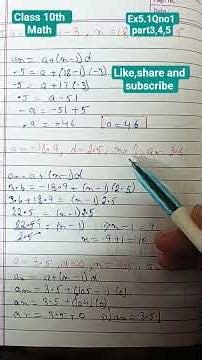 Class 10th
Math
Ex5.1Qno1
part3,4,5
n=18
Like,share and
subscribe
an = a+(n-1)d
-5 = a+(18-1)(-3)
-5 = a+17(-3)
-5 = a-51
-a = -51+5
a=46
a=-18.9, d=2.5, n=? an=3.6
an = a+(n-1)d
3.6 = -18.9+(n-1)(2.5)
3.6+18.9=(n-1)2.5
22.5=(n-1)2.5
22.5 = (n-1) n-1=9
2.5 n=9+1=10
a=3.5, d=0, n=105
an = a+(n-1)d
an = 3.5+(105-1)(0)
an = 3.5+(104)(0)
an = 3.5+0 an=3.5